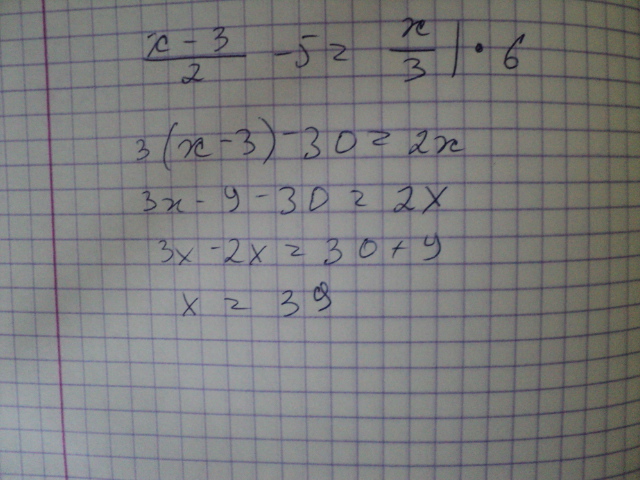 (x - 3)/2 - 5 = x/3 | · 6
3(x - 3) - 30 = 2x
3x - 9 - 30 = 2x
3x - 2x = 30 + 9
x = 39